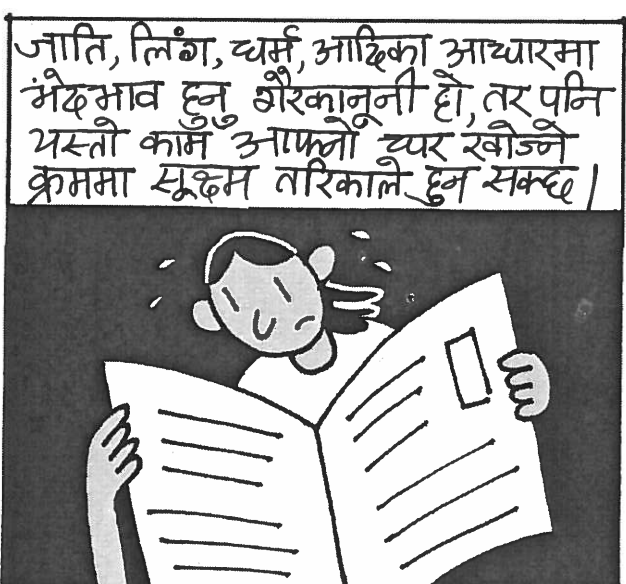 जाति, लिंग, धर्म, आदिका आधारमा
भेदभाव हुनु गैरकानूनी हो, तर पनि
यस्तो काम आफ्नो घर खोज्ने
क्रममा सूक्ष्म तरिकाले हुन सक्छ।